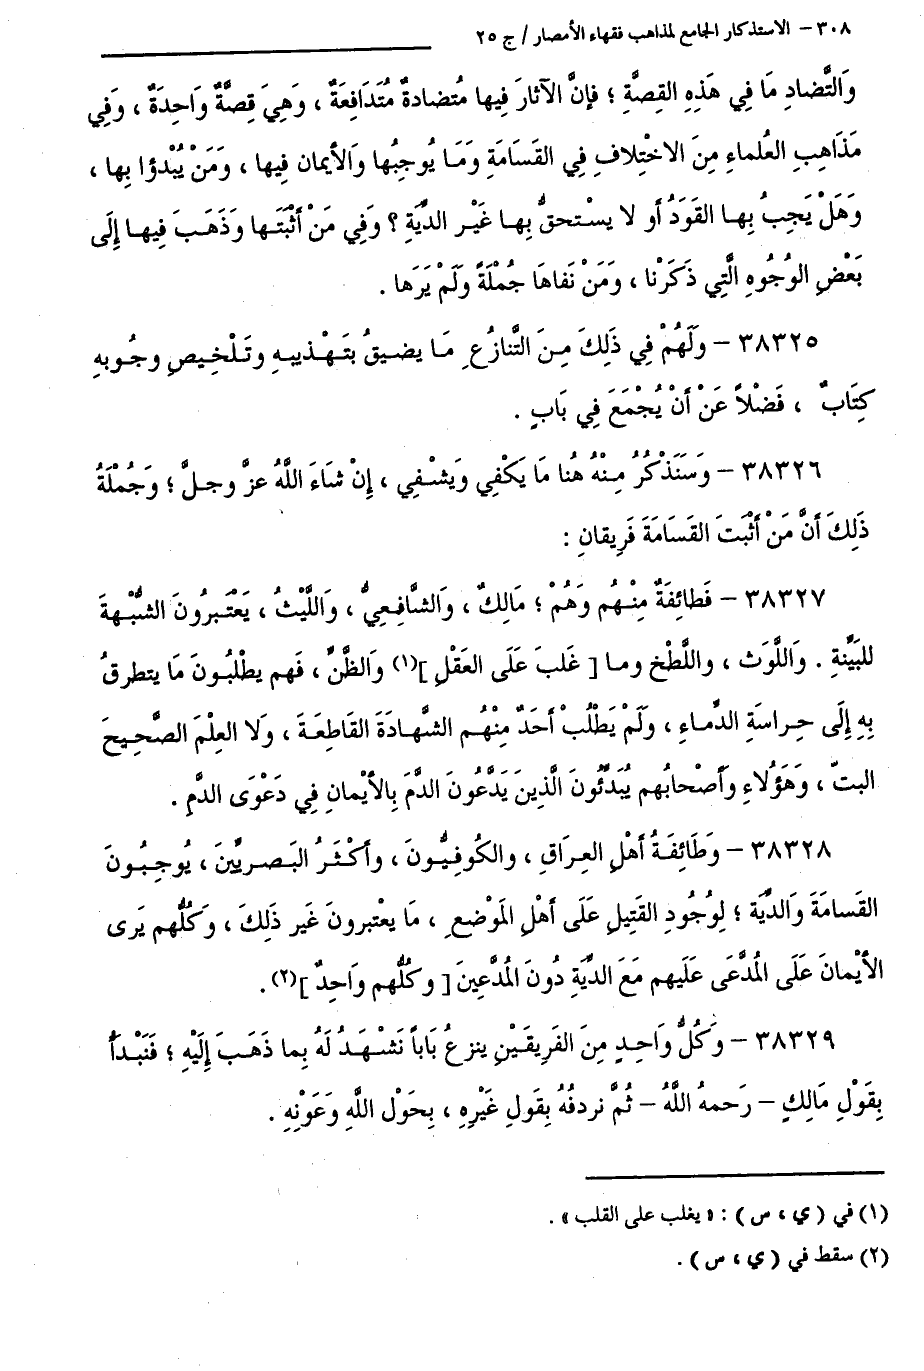 ٣٠٨ – الاستذكار الجامع لمذاهب فقهاء الأمصار / ج ٢٥
وَالتَّضادِ مَا فِي هَذِهِ القِصَّةِ ؛ فإنَّ الآثارَ فِيها مُتضادةٌ مُتَدَافِعَةٌ ، وَهِيَ قِصَّةٌ وَاحِدَةٌ ، وَفِي
مَذَاهِبِ العُلماءِ مِنَ الاخْتِلافِ فِي القَسَامَةِ وَمَا يُوجِبُها وَالأيمان فِيها ، وَمَنْ يُبْدؤا بِها ،
وَهَلْ يَجِبُ بِها القَوَدُ أو لا يسْتحقُّ بِها غَيْر الدِّيَةِ ؟ وَفِي مَنْ أثْبَتَها وَذَهَبَ فِيها إِلَى
بَعْضِ الوُجُوهِ الَّتِي ذَكَرْنا ، وَمَنْ نَفاهَا جُمْلَةً وَلَمْ يَرَها .
٣٨٣٢٥ – ولَهُمْ فِي ذَلِكَ مِنَ التَّنازُعِ مَا يضيقُ بتَهْذيبهِ وتَلْخِيصِ وجُوبهِ
كِتَابٌ ، فَضْلاً عَنْ أَنْ يُجْمَعَ فِي بَابٍ .
٣٨٣٢٦ – وَسَنَذْكُرُ مِنْهُ هُنا مَا يَكْفِي وَيشْفِي ، إِنْ شَاءَ اللَّهُ عزَّ وجلَّ ؛ وَجُملَةُ
ذَلِكَ أَنَّ مَنْ أَثْبَتَ القَسَامَةَ فَرِيقانِ :
٣٨٣٢٧ – فَطائِفَةٌ مِنْهُم وَهُمْ ؛ مالِكٌ ، وَالشَّافِعِيُّ ، وَاللَّيْثُ ، يَعْتَبِرُونَ الشُّبْهةَ
للبَيِّنةِ . وَاللَّوَث ، واللَّطْخ وما [ غَلبَ عَلَى العَقْلِ ](١) وَالظَّنِّ ، فَهم يطْلُبُونَ مَا يتطرقُ
بِهِ إِلَى حِراسَةِ الدِّماءِ ، ولَمْ يَطْلُبْ أحَدٌ مِنْهُم الشَّهادَةَ القَاطِعَةَ ، وَلا العِلْمَ الصَّحِيحَ
البتَّ ، وَهَؤُلاءِ وأَصْحابُهم يُبَدِّئُونَ الَّذِينَ يَدَّعُونَ الدَّمَ بِالأَيْمانِ فِي دَعْوَى الدَّمِ .
٣٨٣٢٨ – وَطَائِفَةُ أهلِ العِراقِ ، والكُوفِيُّونَ ، وأكْثَرُ البَصرِيِّينَ ، يُوجِبُونَ
القَسامَةَ وَالدِّيةَ ؛ لِوُجُودِ القَتِيلِ عَلَى أهْلِ المَوْضعِ ، مَا يعْتبرونَ غَير ذَلِكَ ، وَكُلُّهم يَرى
الأَيْمانَ عَلَى المُدَّعَى عَلَيهم مَعَ الدِّيَةِ دُونَ المُدَّعِينَ [ وكُلُّهم وَاحِدٌ ](٢) .
٣٨٣٢٩ – وَكُلُّ وَاحِدٍ مِنَ الفَرِيقَيْنِ ينزعُ بَاباً نَشْهَدُ لَهُ بِما ذَهَبَ إِلَيْهِ ؛ فَنَبْدَأُ
بِقَوْلِ مَالِكٍ – رَحمهُ اللَّهُ – ثُمَّ نردفُهُ بِقَولِ غَيْرِهِ ، بِحَوْل اللَّهِ وعَوْنِهِ .
(١) في ( ي ، س ) : « يغلب على القلب » .
(٢) سقط في ( ي ، س ) .